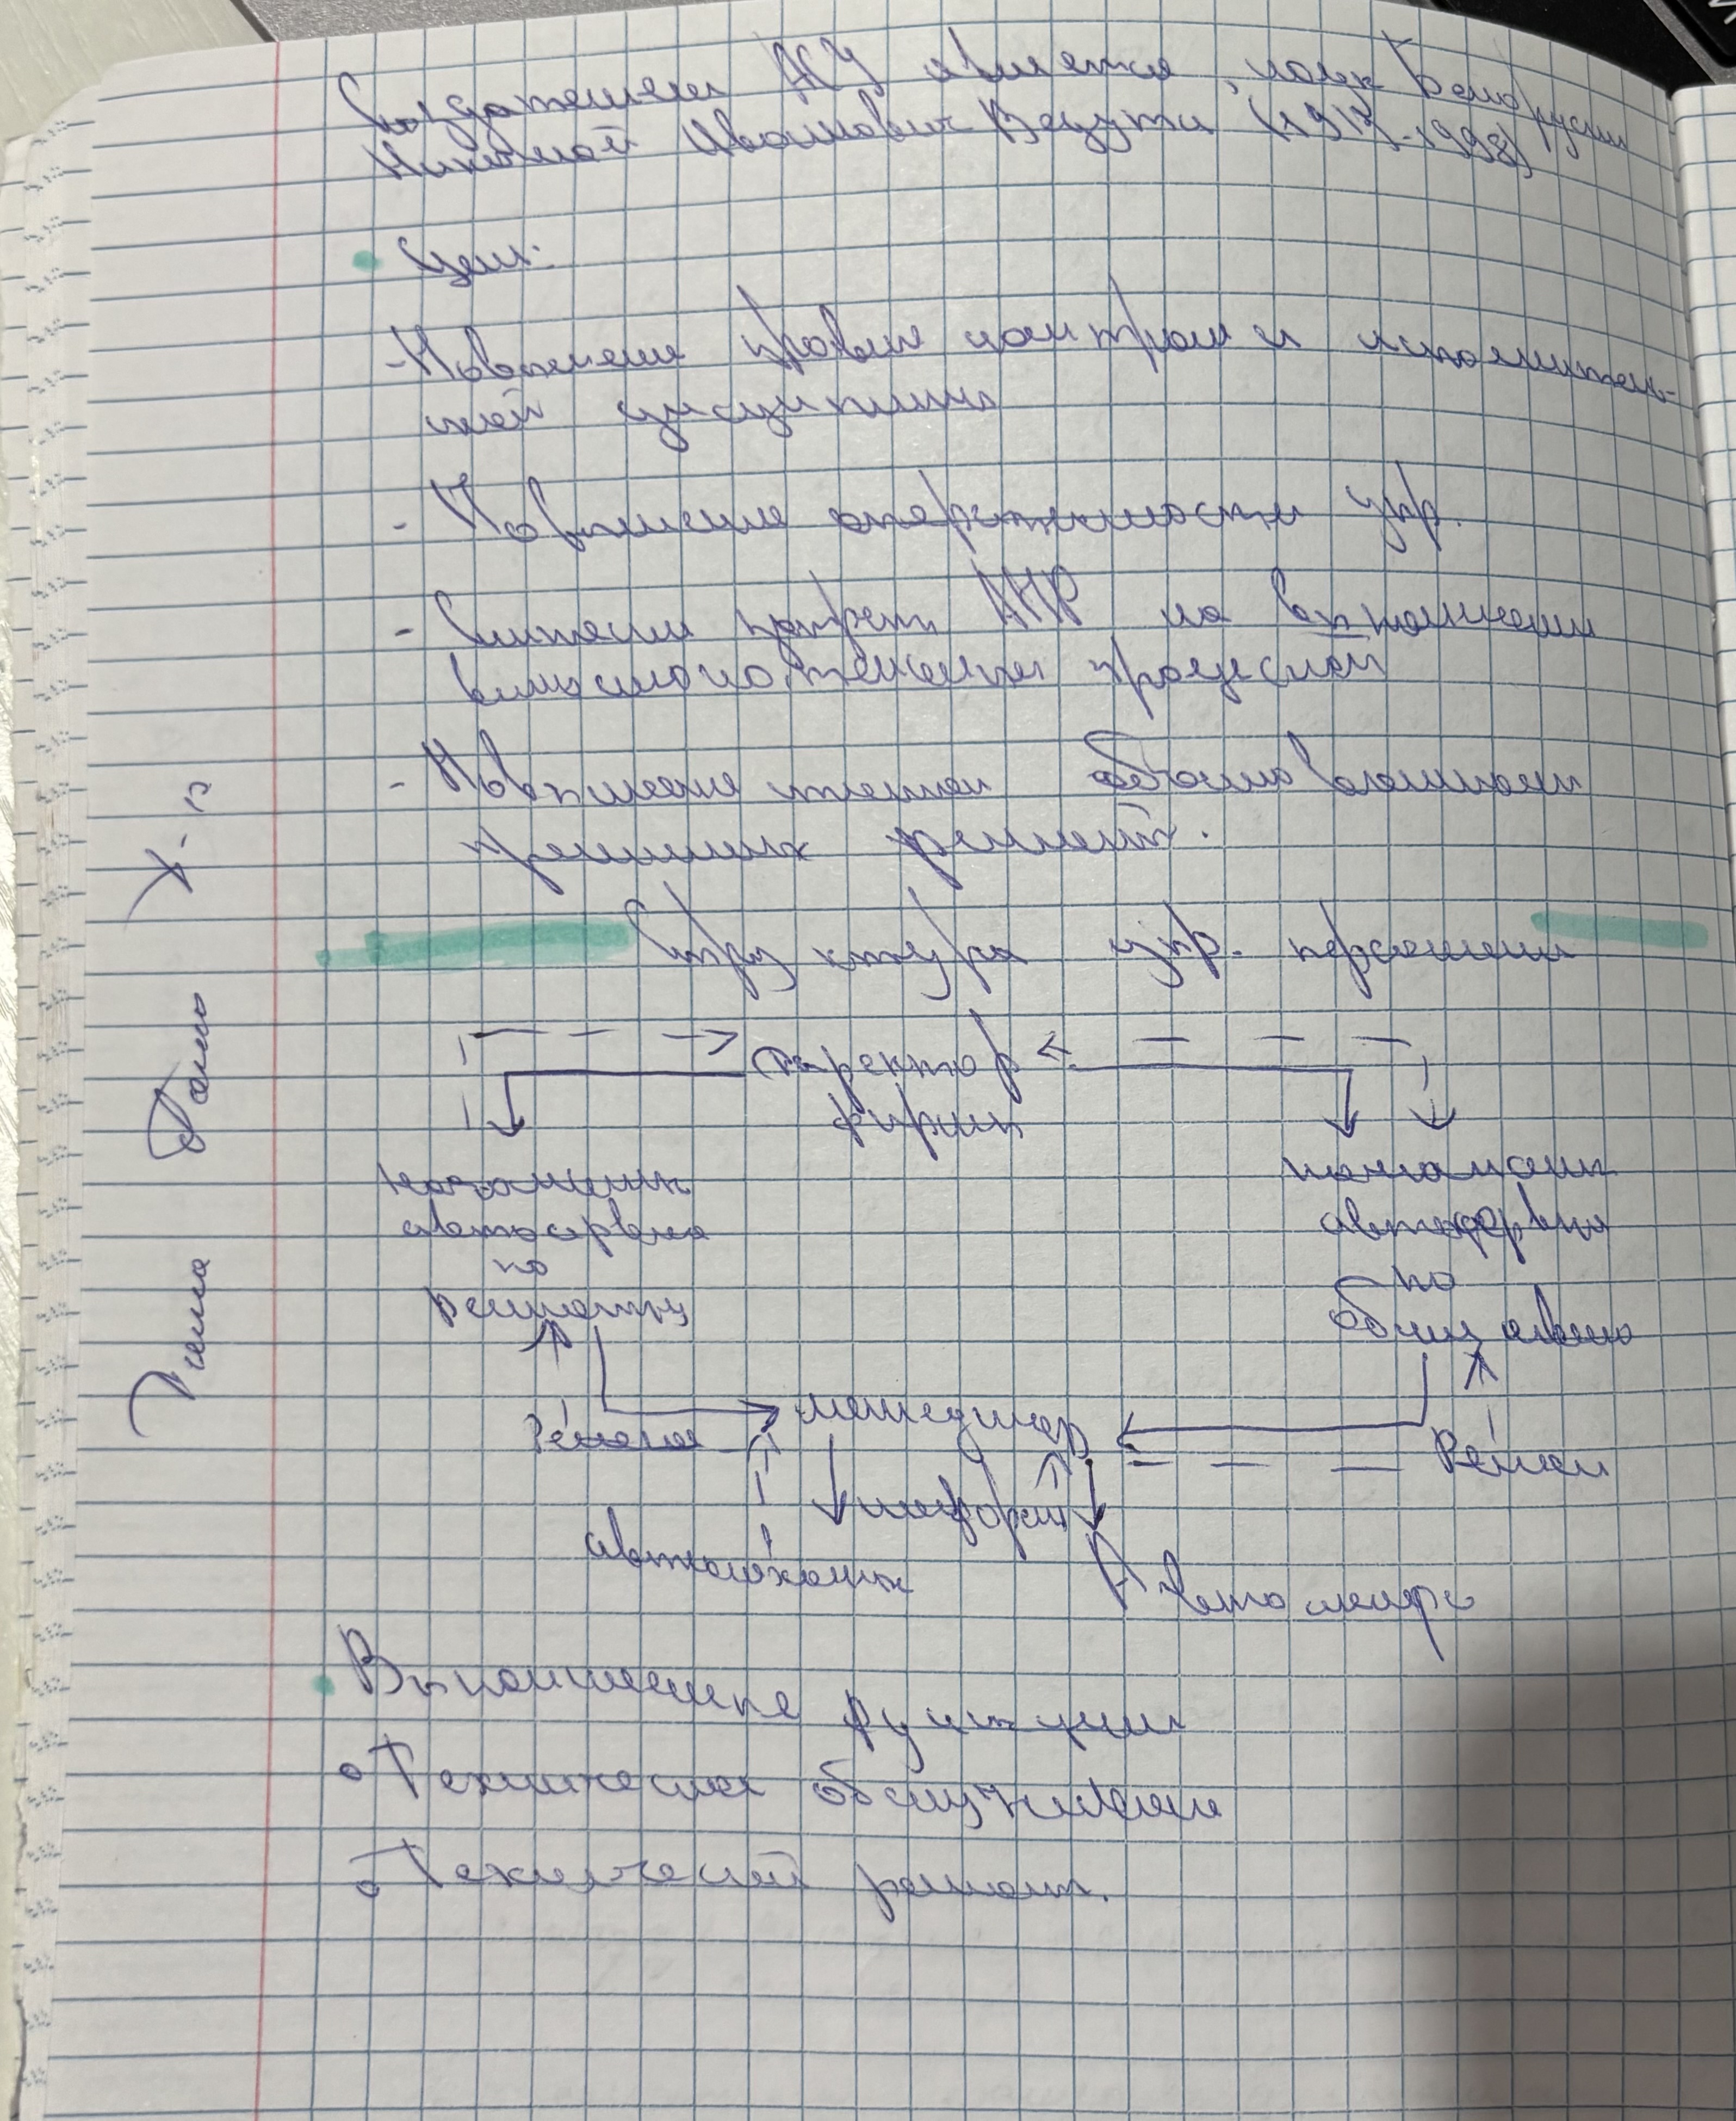 Создателем АСУ является, наук Белорусии
Николай Иванович Ведута (1913-1998)
Цели:
- Повышение уровня контроля и исполнитель-
ной дисциплины
- Повышение оперативности упр.
- затрат на выполнение
вспомогательных процессов
- Повышение степени обоснованности
решений.
Структура упр. персоналом
Директор
фирмы
начальник
автосервиса
по
ремонту
начальник
автосервиса
по
обслуживанию
Решение
менеджер
Решен
информ
автомеханик
Автослесарь
Выполнение функции
Техническое обслуживание
Технический ремонт.
Тема